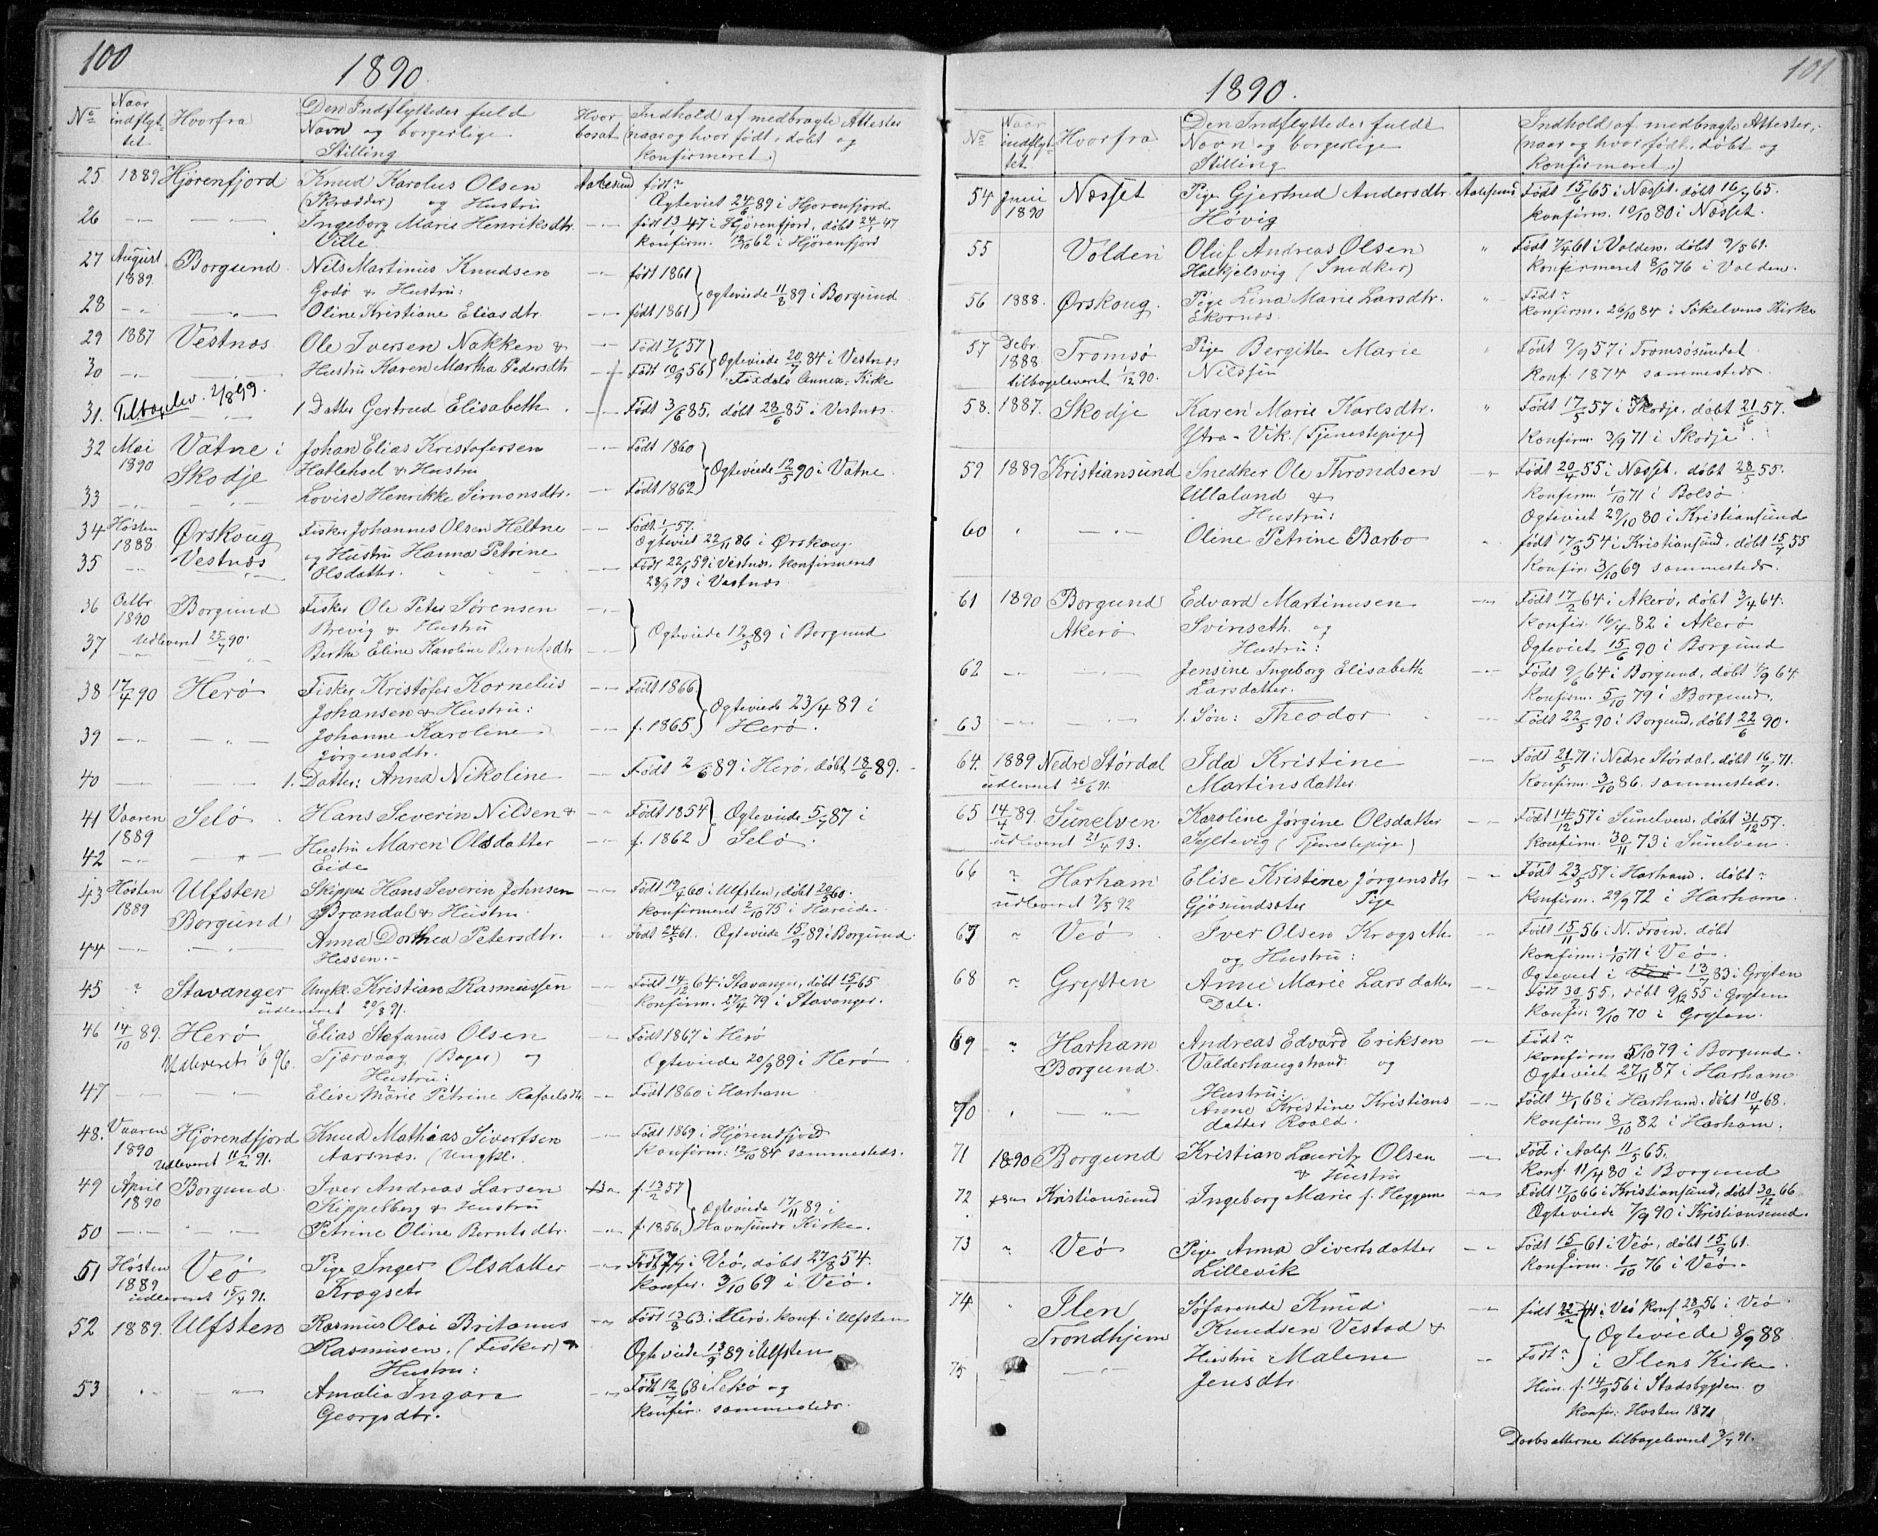 100
1890.
No Naar indflyttet Hvorfra Den Indflyttedes fuld Navn og borgerlige Stilling Hvor bosat Indhold af medbragte Attester (naar og hvor født, døbt og konfirmeret.)
25 1889 Hjörenfjord Knud Karolus Olsen Aalesund født ~
(Skrædder) og Hustru Ogteviet 24/6 89 i Hjörenfjord
26 Ingeborg Marie Henriksdtr. født 13/1 47 i Hjörenfjord, døbt 24/1 47
Ville. Konfirm. 12/10 62 i Hjörenfjord
27 August 1889. Borgund. Nils Martinus Knudsen født 1861
Godø & Hustru: Ogteviede 11/8 89 i Borgund
28 Oline Kristiane Eliasdtr. født 1861
29 1887 Vestnæs Ole Iversen Nakken & Født 7/6 57
30 Hustru Karen Martha Pedersdtr Født 10/9 56 Ogteviede 20/7 84 i Vestnæs
Kirke
31. Tilbagelev. 2/8 99. 1 Datter Gertrud Elisabeth Født 3/6 85. døbt 28/6 85 i Vestnæs.
32 Mai 1890 Vatne i Skodje Johan Elias Kristofersen Født 1860
Hatlehol & Hustru Ogteviede 12/5 90 i Vatne
33 Lovise Henrikke Simonsdtr. Født 1862
34 Høsten 1888 Ørskoug Fisker Johannes Olsen Heltne Født 1/1 57.
Ogteviet 22/11 86 i Ørskoug.
35 Vestnæs og Hustru Hanna Petrine Olsdatter. Født 22/1 59 i Vestnæs. Konfirmeret
28/9 73 i Vestnæs.
36 Octbr 1890 Borgund Fisker Ole Peter Sørensen
Brevig & Hustru Ogteviede 12/5 89 i Borgund
37 Udleveret 25/7 90. Berthe Eline Karoline Berntsdtr
38 17/4 90 Herö Fisker Kristofer Kornelius Født 1866
Johansen & Hustru: Ogteviede 23/4 89 i
39 Johanne Karoline f. 1865. Herö.
Jörgensdtr.
40 1. Datter: Anna Nikoline Født 2/6 89 i Herö, døbt 18/6 89.
41 Vaaren 1889 Selö Hans Severin Nilsen & Født 1854 Ogteviede 5/7 87 i
42 Hustru Maren Olsdatter f. 1862 Selö.
Eide
43 Høsten 1889 Ulfsten Skipper Hans Severin Johnsen Født 19/4 60 i Ulfsten, døbt 20/5 60.
Borgund Brandal & Hustru Konfirmeret 2/10 75 i Hareide.
44 Anna Dorthea Petersdtr. født 24/5 61. Ogteviede 15/9 89 i Borgund.
Hessen.
45 " Stavanger Ungkl. Kristian Rasmussen Født 14/12 64 i Stavanger, døbt 15/1 65
udleveret 20/8 91. Konfirm. 27/4 79 i Stavanger.
46 14/10 89. Herö Elias Stefanus Olsen Født 1867 i Herö
Udleveret 1/6 96. Tjærvaag (Bager) og Ogteviede 20/9 89 i Herö
Hustru:
47 Elise Marie Petrine Rafaelsdtr Født 1860 i Harham
48. Vaaren 1890 Hjörendfjord Knud Mathias Sivertsen Født 1869 i Hjörendfjord
Udleveret 11/2 91. Aarsnæs. (Ungkl. Konfirm: 12/10 84 sammesteds.
49 April 1890 Borgund Iver Andreas Larsen f. 13/2 57
Kippelberg & Hustru Ogteviede 17/11 89 i
50 Petrine Oline Berntsdtr. f. 1856 Havnsunds Kirke.
51 Høsten 1889 Veö Pige Inger Olsdatter i Veö, døbt 27/8 54.
udleveret 15/4 91. Krogset Konfir. 3/10 69 i Veö.
52 1889. Ulfsten Rasmus Olai Britanus Født 13/8 63. i Herö. konf. i Ulfsten
Rasmusen. (Fisker) & Ogteviede 13/9 89 i Ulfsten
Hustru:
53 Amalia Ingara Født 12/7 68 i Selö og
Georgsdtr. Konfir. sammesteds.
101
1890.
No Naar indflyttet. Hvorfra Den Indflyttedes fulde Navn og borgerlige Stilling Indhold af medbragte Attester, (naar og hvor født, døbt og konfirmeret.)
54 Juni 1890 Næsset Pige Gjertrud Andersdtr. Aalesund Født 15/6 65 i Næsset. døbt 16/7 65.
Hövig Konfirm. 10/10 80 i Næsset.
55 Volden Oluf Andreas Olsen " Født 7/4 61 i Volden. døbt 9/5 61.
Halkjelsvig (Snedker) Konfirmeret 8/10 76 i Volden.
56 1888. Ørskoug. Pige Lina Marie Larsdtr. " Født ~
Ekornæs. Konfirm. 26/10 84 i Søkelvens Kirke
57 Debr. 1888 Tromsö Pige Bergitte Marie " Født 9/9 57 i Tromsösundet
tilbageleveret 1/12 90. Nilssen Konf. 1874 sammesteds.
58. 1887. Skodje Karen Marie Karlsdtr. " Født 17/5 57 i Skodje, døbt 21/6 57.
Ytre-Vik. (Tjenestepige) Konfirm. 3/9 71 i Skodje.
59 1889 Kristiansund Snedker Ole Throndsen Født 20/4 55 i Næsset, døbt 28/5 55.
Ullaland & Konfirm. 1/10 71 i Bolsö.
Hustru: Ogteviet 29/10 80 i Kristiansund
60 Oline Petrine Barbo født 17/3 54 i Kristiansund, døbt 15/7 55
Konfir. 3/10 69 sammesteds.
61 1890 Borgund Edvard Martinusen Født 17/2 64 i Akerö, døbt 3/4 64.
Akerö Svinseth. og Konfir. 16/4 82 i Akerö
Hustru: Ogteviet 15/6 90 i Borgund
62 Jensine Ingeborg Elisabeth Født 9/6 64 i Borgund, døbt 4/9 64
Larsdatter. Konfirm. 5/10 79 i Borgund.
63 1. Søn: Theodor Født 22/5 90 i Borgund, døbt 22/6 90.
64. 1889 Nedre Stördal Ida Kristine Født 21/5 71 i Nedre Stördal, døbt 16/7 71.
udleveret 26/6 91. Martinsdatter Konfirm. 3/10 86. sammesteds.
65 14/4 89 Sunelven Karoline Jörgine Olsdatter Født 14/12 57 i Sunelven, døbt 31/12 57.
udleveret 21/4 93. Syltevig (Tjenestepige) Konfirm. 30/11 73 i Sunelven.
66 " Harham Elise Kristine Jörgensdtr Født 23/5 57 i Harham. døbt ~
udleveret 7/5 92 Gjösundsæter Pige Konfirm. 29/9 72 i Harham.
67 " Veö Iver Olsen Krogseth Født 15/11 56 i N. Froen. døbt
og Hustru: Konfirm: 1/10 71 i Veö.
68 " Grytten Anne Marie Larsdatter Ogteviet i 13/7 83 i Gryten
Dale. Født 30/7 55, døbt 9/12 55 i Gryten
Konfir: 9/10 70 i Gryten.
69 " Harham Andreas Edvard Eriksen Født ~
Borgund. Valderhaugstrand og Konfirm 5/10 79 i Borgund.
Ogteviet 27/11 87 i Harham
70 Hustru: Anne Kristine Kristians Født 4/1 68 i Harham. døbt 10/4 68.
datter Roald. Konfirm. 8/10 82 i Harham.
71 1890 Borgund Kristian Lauritz Olsen Fød i Aales. 11/5 65.
& Hustru Konf. 11/4 80 i Borgund
72 Kristiansund Ingeborg Marie f. Heggem Født 17/10 66 i Kristiansund, døbt 30/12 66
Ogteviede 7/9 90 i Kristiansund.
73 " Veö Pige Anna Sivertsdatter Født 15/6 61 i Veö, døbt 15/9 61.
Lillevik Konfirm. 1/10 76 i Veö.
74 Ilen Söfarende Knud født 22/2 41 i Veö Konf. 28/9 56 i Veö
Trondhjem Knudsen Vestad & Ogteviede 8/9 88
75 Hustru Malene Født ~ i Ilens Kirke.
Jensdtr. Hun f. 14/9 56 i Stadsbygden og
Konfir. Høsten 1871
Daabsatterne tilbageleveret 3/7 91.